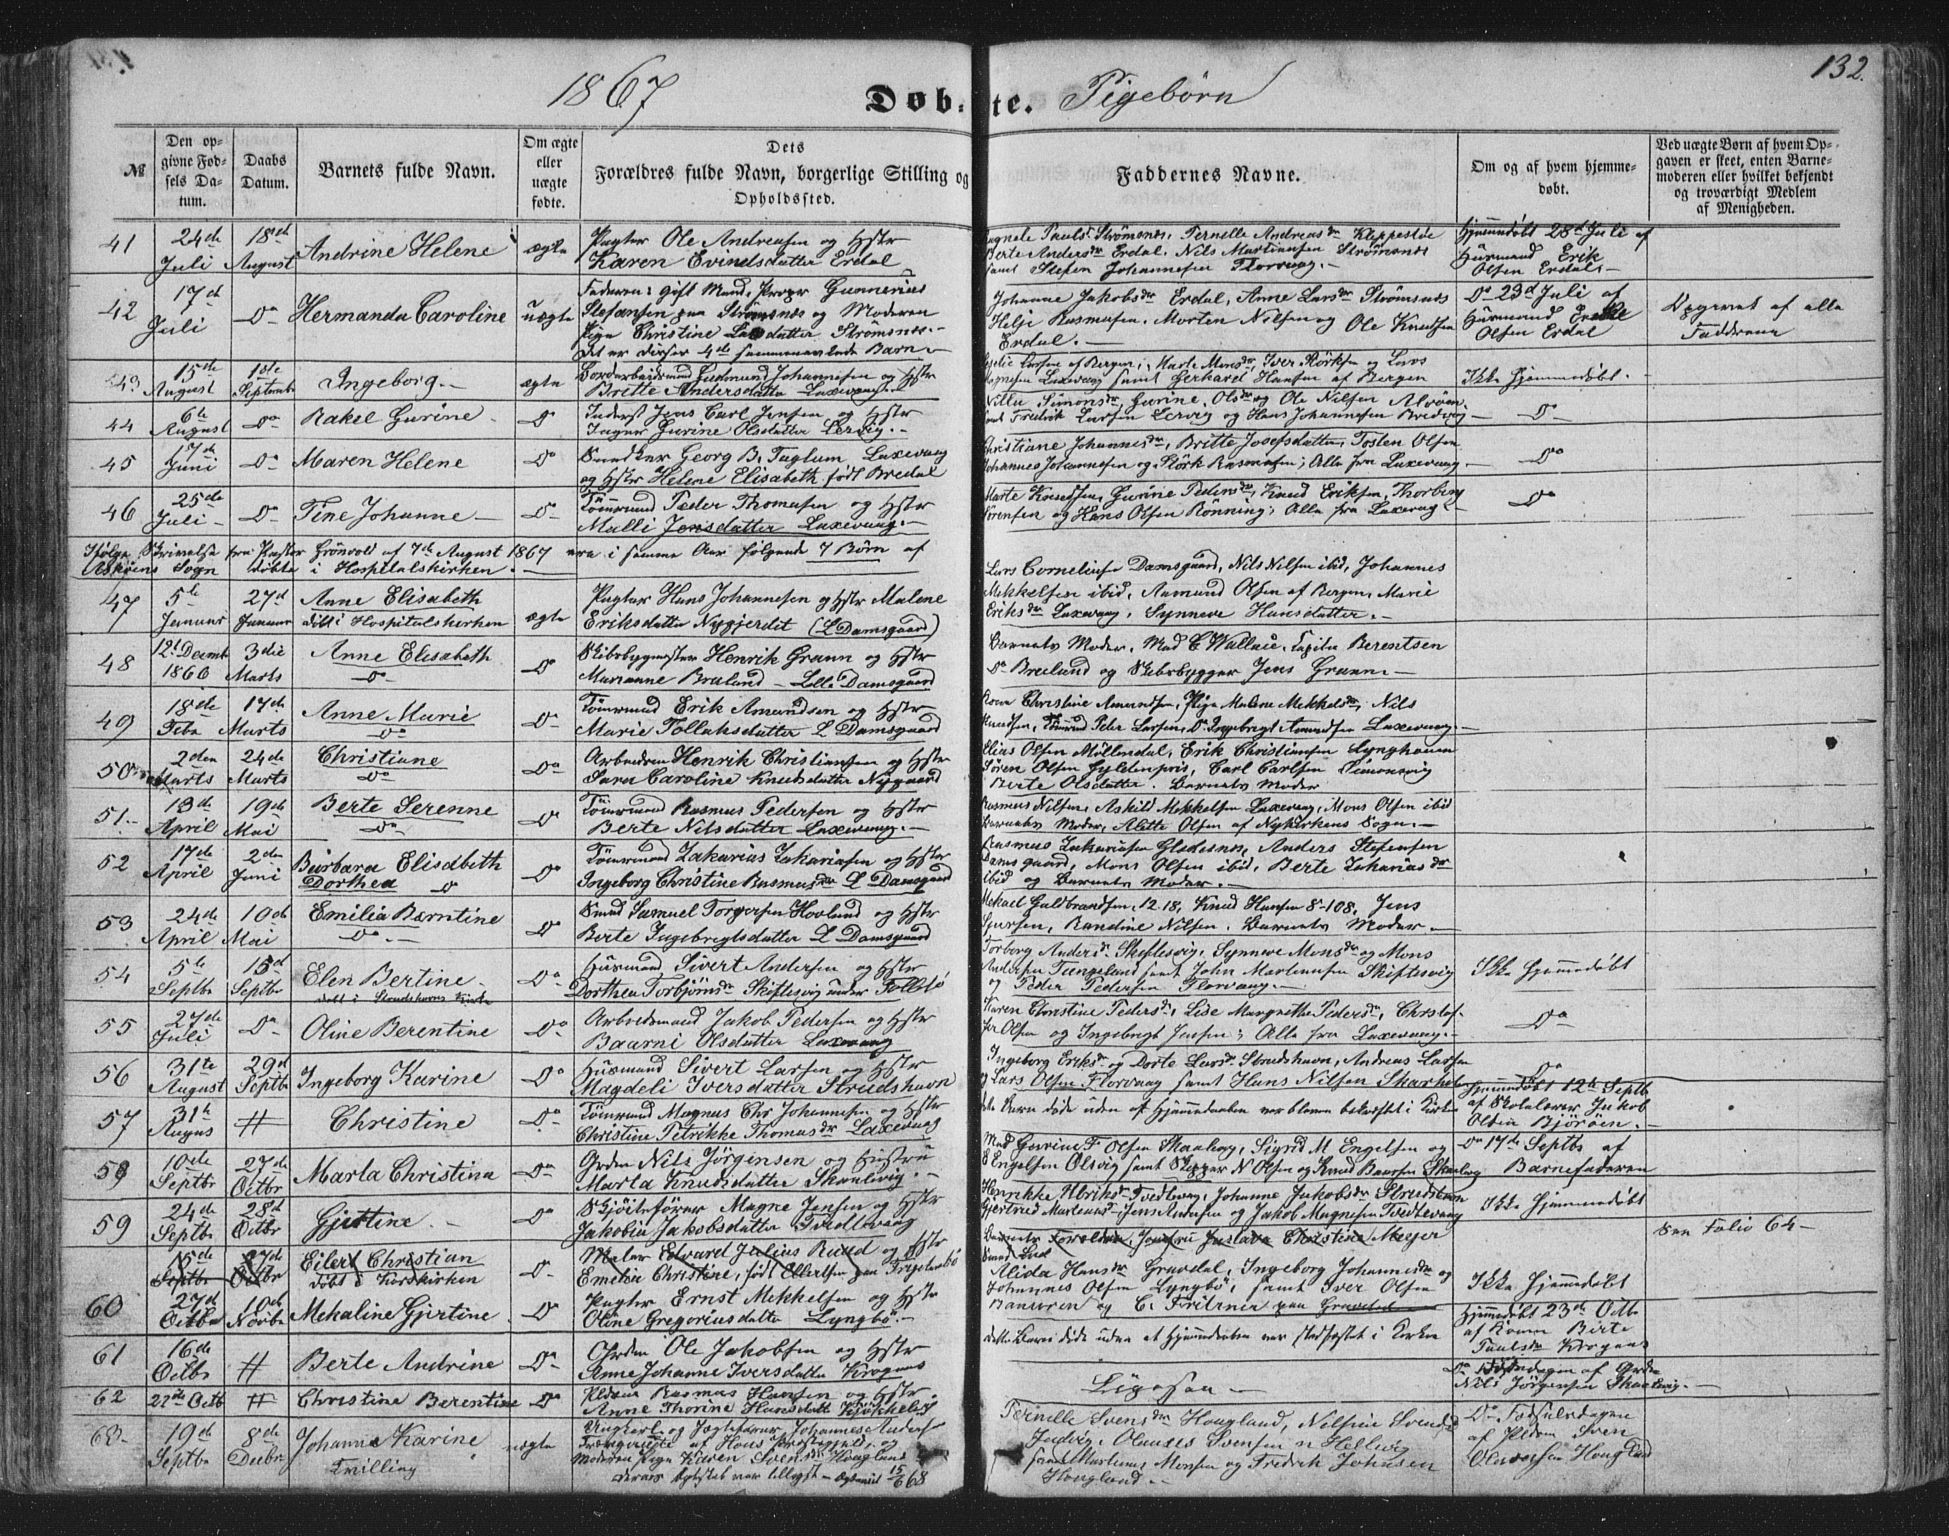 132.
1867 Døbte. Pigebørn
№
Den opgivne Fødsels Datum.
Daabs Datum.
Barnets fulde Navn.
Om ægte eller uægte fødte.
Dets Forældres fulde Navn, borgerlige Stilling og Opholdssted.
Faddernes Navne.
Om og af hvem hjemmedøbt.
Ved uægte Børn af hvem Opgaven er skeet, enten Barnemoderen eller hvilket bekjendt og troværdigt Medlem af Menigheden.
41 24de Juli 18de August Andrine Helene ægte
Pagter Ole Andreasen og Hstr
Karen Evindsdatter Erdal
Pauls Strömsnes, Pernelle Andreasdr Kleppestöe
Berte Andersdr Erdal, Nils Martinusen Strömsnes
samt Stefen Johannesen Florvaag.-
Hjemmedöbt 28de Juli af
Huusmand Erik
Olsen Erdal-
42 17de Juli Do Hermanda Caroline uægte
Faderen: Gift Mand, Propr Gunnerius
Stefansen paa Strömsnes og Moderen
Pige Christine Larsdatter Strömsnes.-
det er disses 4de sammenavlede Barn.-
Johanne Jakobsdr Erdal, Anne Larsdr Strömsnes
Helje Rasmusen, Morten Nilsen og Ole Knudsen
Erdal.-
Do 23d Juli af
Huusmand Erik
Olsen Erdal
Opgivet af alle
Faddrene
43 15de August 1ste Septembr Ingeborg.- ægte
Gudmund Johannesen og Hstr
Britte Andersdatter Laxevaag.-
Larsen af Bergen, Marte Monsdr, Iver Störksen og Lars
Mognesen Laxevaag samt Gerhard Hansen af Bergen
Ikke hjemmedöbt.
44 6te August Do Rakel Gurine Do
Inderst Jens Carl Jensen og Hstr
Inger Gurine Olsdatter Lervig.-
Simonsdr, Gurine Olsdr og Ole Nilsen Alvöen
samt Fredrik Larsen Lervig og Hans Johannesen Bredvig
Do
45 17de Juni Do Maren Helene Do
Snedker Georg B. Taglum Laxevaag
og Hstr Helene Elisabeth född Bredal
Christiane Johannesdr, Britte Josefsdatter, Tosten Olsen
Johannes Johannesen og Störk Rasmusen; Alle fra Laxevaag.-
Do
46 25de Juli Do Tine Johanne Do
Tömrmand Peder Thomasen og Hstr
Malli Jensdatter Laxevaag.-
Marte Knudsen, Gurine Pedersdr, Knud Eriksen, Thorberg
Sörensen og Hans Olsen Rönning; Alle fra Laxevaag.-
Do
Ifölge Skrivelse fra Pastor Grönvold af 7de August 1867 ere i samme Aar fölgende 7 Börn af
Askøens Sogn döbte i Hospitalskirken.
47 5te Januar 27d Januar Anne Elisabeth
döbt i Hospitalskirken ægte
Pagter Hans Johannesen og Hstr Malene
Eriksdatter Nygjerdet (L Damsgaard)
Lars Corneliusen Damsgaard, Nils Nilsen ibid, Johannes
Mekkelsen ibid, Aamund Olsen af Bergen, Marie
Eriksdr Laxevaag, Synneve Hansdatter.-
48 12t Decmb 1866 3die Marts Anne Elisabeth
Do Do
Skibsbygmester Henrik Grann og Hstr
Marianne Breland - Lille Damsgaard
Barnets Moder, Mad C. Wallace, Captein Berentsen
Do Breiland og Skibsbygger Jens Grann.-
49 18de Feba 17de Marts Anne Marie
Do Do
Tömrmand Erik Amundsen og Hstr
Marie Tollaksdatter L Damsgaard
Kone Christine Amundsen, Pige Malene Mekkelsdr, Nils
Knudsen, Tömrmd Peder Larsen, Do Ingebrigt Amundsen Laxevaag.
50 2den Marts 24de Marts Christiane
Do Do
Arbeidsmd Henrik Christiansen og Hstr
Sara Caroline Knudsdatter Nygaard
Elias Olsen Möllendal, Erik Christiansen Lynghaugen
Sören Olsen Gyldenpris, Carl Carlsen Simonsvig
Berte Olsdatter. Barnets Moder
51.- 13de April 19de Mai Berte Serenne
Do Do
Tömrmand Rasmus Pedersen og Hstr
Berte Nilsdatter Laxevaag.-
Rasmus Nilsen, Askild Mekkelsen Laxevaag, Mons Olsen ibid
Barnets Moder, Alette Olsen af Nykirkens Sogn.-
52 17de April 2den Juni Barbara Elisabeth
Dorthea Do Do
Tömrmand Zakarias Zakariasen og Hstr
Ingeborg Christine Rasmusdr L Damsgaard
Rasmus Zakariasen Gladesnes, Anders Stefensen
Damsgaard, Mons Olsen ibid, Berte Zakariasdr
ibid og Barnets Moder.-
53 24de April 10de Mai Emilia Berntine
Do.- Do
Smed Samuel Torgersen Hovland og Hstr
Berte Ingebrigtsdatter L Damsgaard
Mekael Guldbrandsen, 12.18, Knud Hansen 8-108, Jens
Sjursen, Randine Nilsen. Barnets Moder.-
54 5te Septbr 15d Septbr Elen Bertine
döbt i Strudshavns Kirke Do
Huusmand Sivert Andersen og Hstr
Dorthea Torbjörnsdr Skiftesvig under Follesö
Torborg Andersdr Skiftesvig, Synneve Monsdr og Mons
Andersen Tungeland samt John Martinusen Skiftesvig
og Peder Pedersen Florvaag.-
Ikke hjemmedöbt
55 27de Juli Do Oline Berentine Do
Arbeidsmand Jakob Pedersen og Hstr
Baarni Olsdatter Laxevaag
Karen Christine Pedersdr, Lise Margrethe Pedersdr, Christof-
fer Olsen og Ingebrigt Jensen; Alle fra Laxevaag.-
Do
56 31te August 29d Septbr Ingeborg Karine Do
Huusmand Sivert Larsen og Hstr
Magdeli Iversdatter Strudshavn
Ingeborg Eriksdr og Dorte Larsdr Strudshavn, Andreas Larsen
og Lars Olsen Florvaag samt Hans Nilsen Skarholmen
Do
57 31te Augus # Christine Do
Tömrmand Magnus Chr Johannesen og Hstr
Christine Petrikke Thomasdr Laxevaag
dette Barn döde uden at Hjemmedaaben var bleven bekræftet i Kirken
Hjemmedöbt 12te Septb
af Skolelærer Jakob
Olsen Björöen.-
58 10de Septbr 27de Octbr Marta Christina Do
Orden Nils Jörgensen og Hustru
Marta Knudsdatter Skaalevig.-
Mad Gurine F. Olsen Skaalevig, Sigrid M Engelsen og
S Engelsen Olsvig samt Skipper N Olsen og Knud Baarsen Skaalevig
Do 17de Septbr af
Barnefaderen
59 24de Septbr 28d Octbr Gjertine.- Do
Skjöitsförer Magne Jensen og Hstr
Jakobia Jakobsdatter Tvedtevaag
Henrikke Ulriksdr Tvedtevaag, Johanne Jakobsdr Strudshavn
Gjertrud Martensdr Jens Andersen og Jakob Magnesen Tvedtevaag
Ikke hjemmedöbt
15de Septbr 27de Octbr Eilert Christian
Döbt i Korskirken Do
Maler Edvard Julius Ruud og Hstr
Emelie Christine, född Ellertsen paa Frydenbö
Barnets Forældre, Jomfru Gustava Christine Meyer
See Folio 64-
60 27de Octbr 10de Novbr Mekaline Gjertine Do
Pagter Ernst Mekkelsen og Hstr
Oline Gregoriusdatter Lyngbö.-
Alida Hansdr Gravdal, Ingeborg Johannesdr og
Johannes Olsen Lyngbö, samt Iver Olsen
og C. paa Gravdal
Ikke hjemmedöbt
61 16de Octbr # Berte Andrine Do
Orden Ole Jakobsen og Hstr
Anne Johanne Iversdatter Krognes
dette Barn döde uden at Hjemmedaaben var stadfæstet i Kirken
Hjemmedöbt 23de Octb
af Konen Birte
Paulsdr Krognes
62 22de Octb # Christine Berentine Do
Pldrm Rasmus Hansen og Hstr
Anne Thorine Hansdatt Kjökkelvig
Ligesaa.-
Do af Orden
Nils Jörgensen Skaalevig.-
63- 19d Septbr 8de Decbr Johanne Karine
Tvilling uægte
Ungkarl og Johannes Anders
af Haus Præstegjeld, og
Moderen Pige Karen Svensdr Hougland
deres Ægteskab var tillyst 15/6 68
Pernelle Svensdr Hougland, Nilsine Svendsdr
Olaves Svensen Hellevig
samt Martinus Monsen og Fredrik Johnsen
Hougland.-
Do Födselsdagen
af Pldrm Sven
Olavesen Hougland